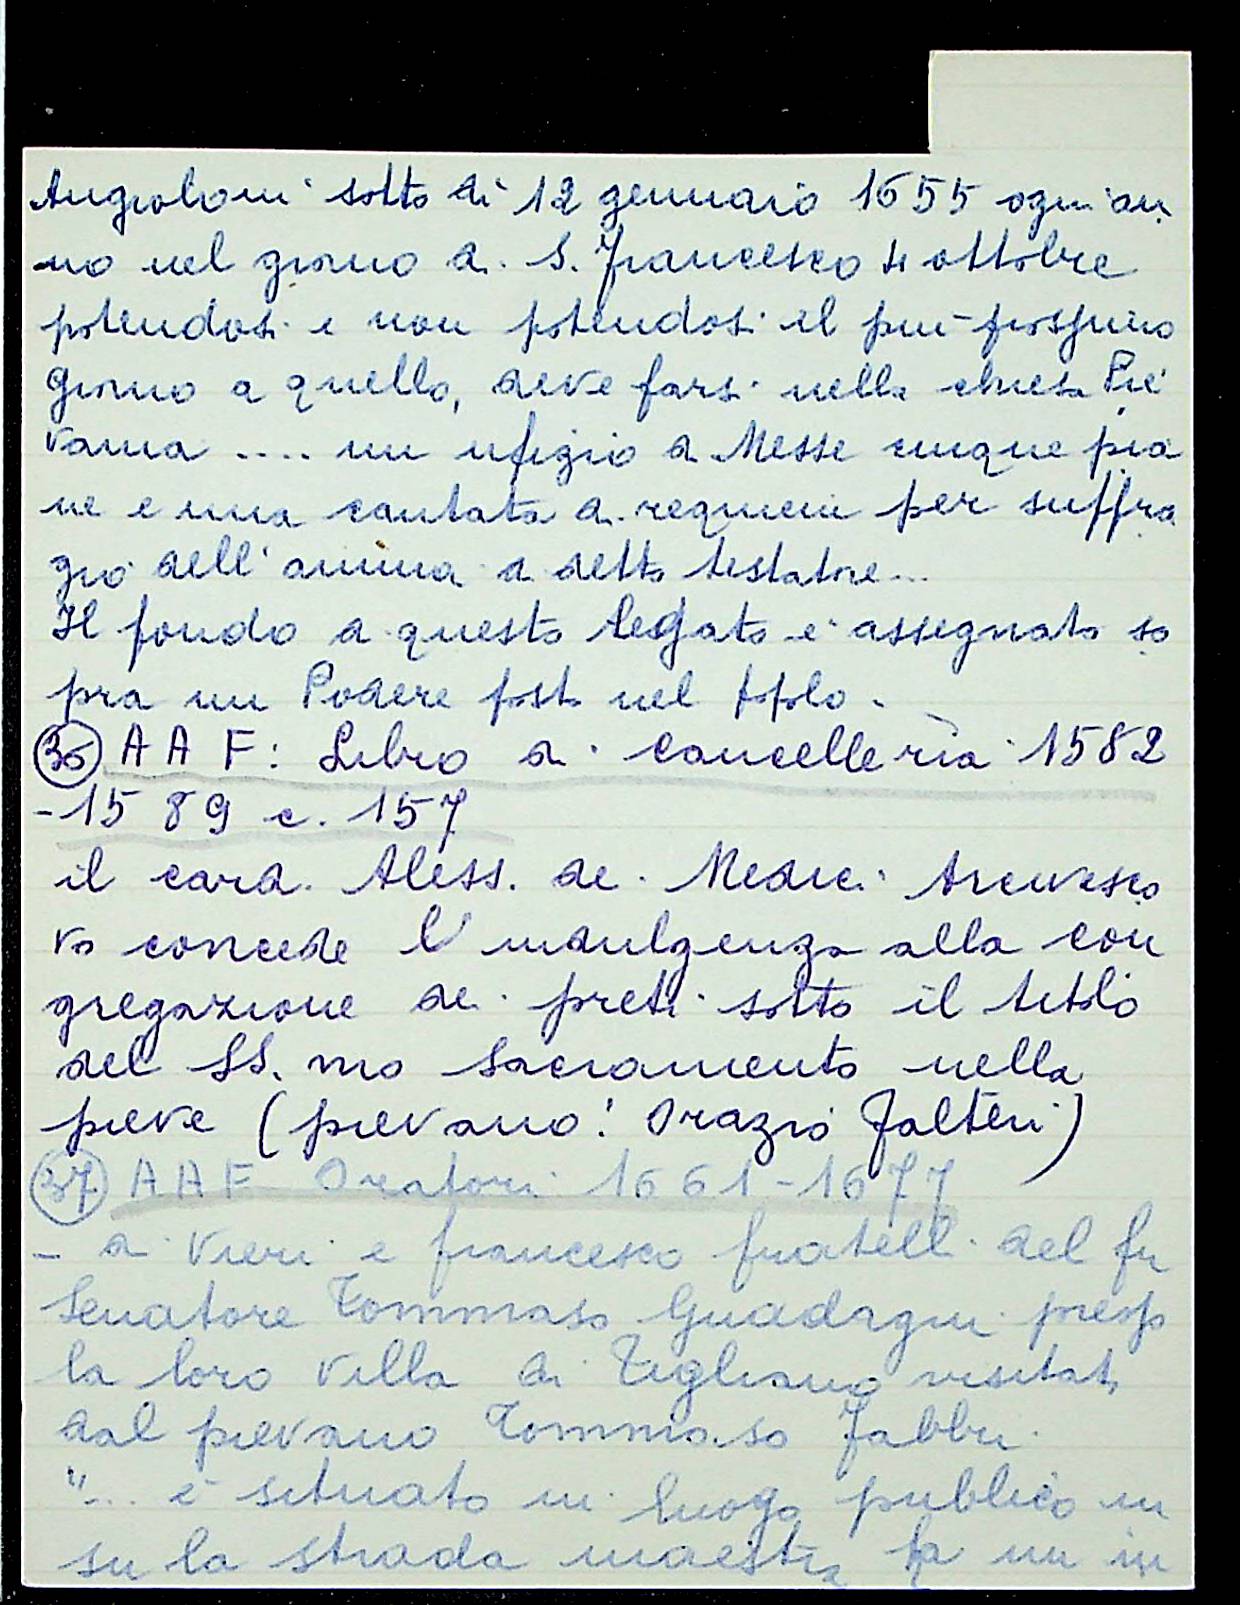 Angioloni sotto dì 12 gennaio 1655 ogni an
no nel giorno di S. Francesco 4 ottobre
potendosi e non potendosi il più prossimo
giorno a quello, deve farsi nella chiesa Pie
vania .... un ufizio di Messe cinque pia
ne e una cantata di requiem per suffra
gio dell'anima di detto testatore...
Il fondo di questo legato è assegnato so
pra un Podere posto nel popolo.
36 AAF: Libro di Cancelleria 1582
-1589 c. 157
il card. Aless. de Medici Arcivesco
vo concede l'indulgenza alla con
gregazione dei preti sotto il titolo
del SS.mo Sacramento nella
pieve (pievano: Orazio Falteri)
37 AAF Oratori 1661-1677
- di Vieri e Francesco fratelli del fu
Senatore Tommaso Guadagni presso
la loro villa di Tigliano visitati
dal pievano Tommaso Fabbri.
"... è situato in luogo publico in
su la strada maestra fa un in